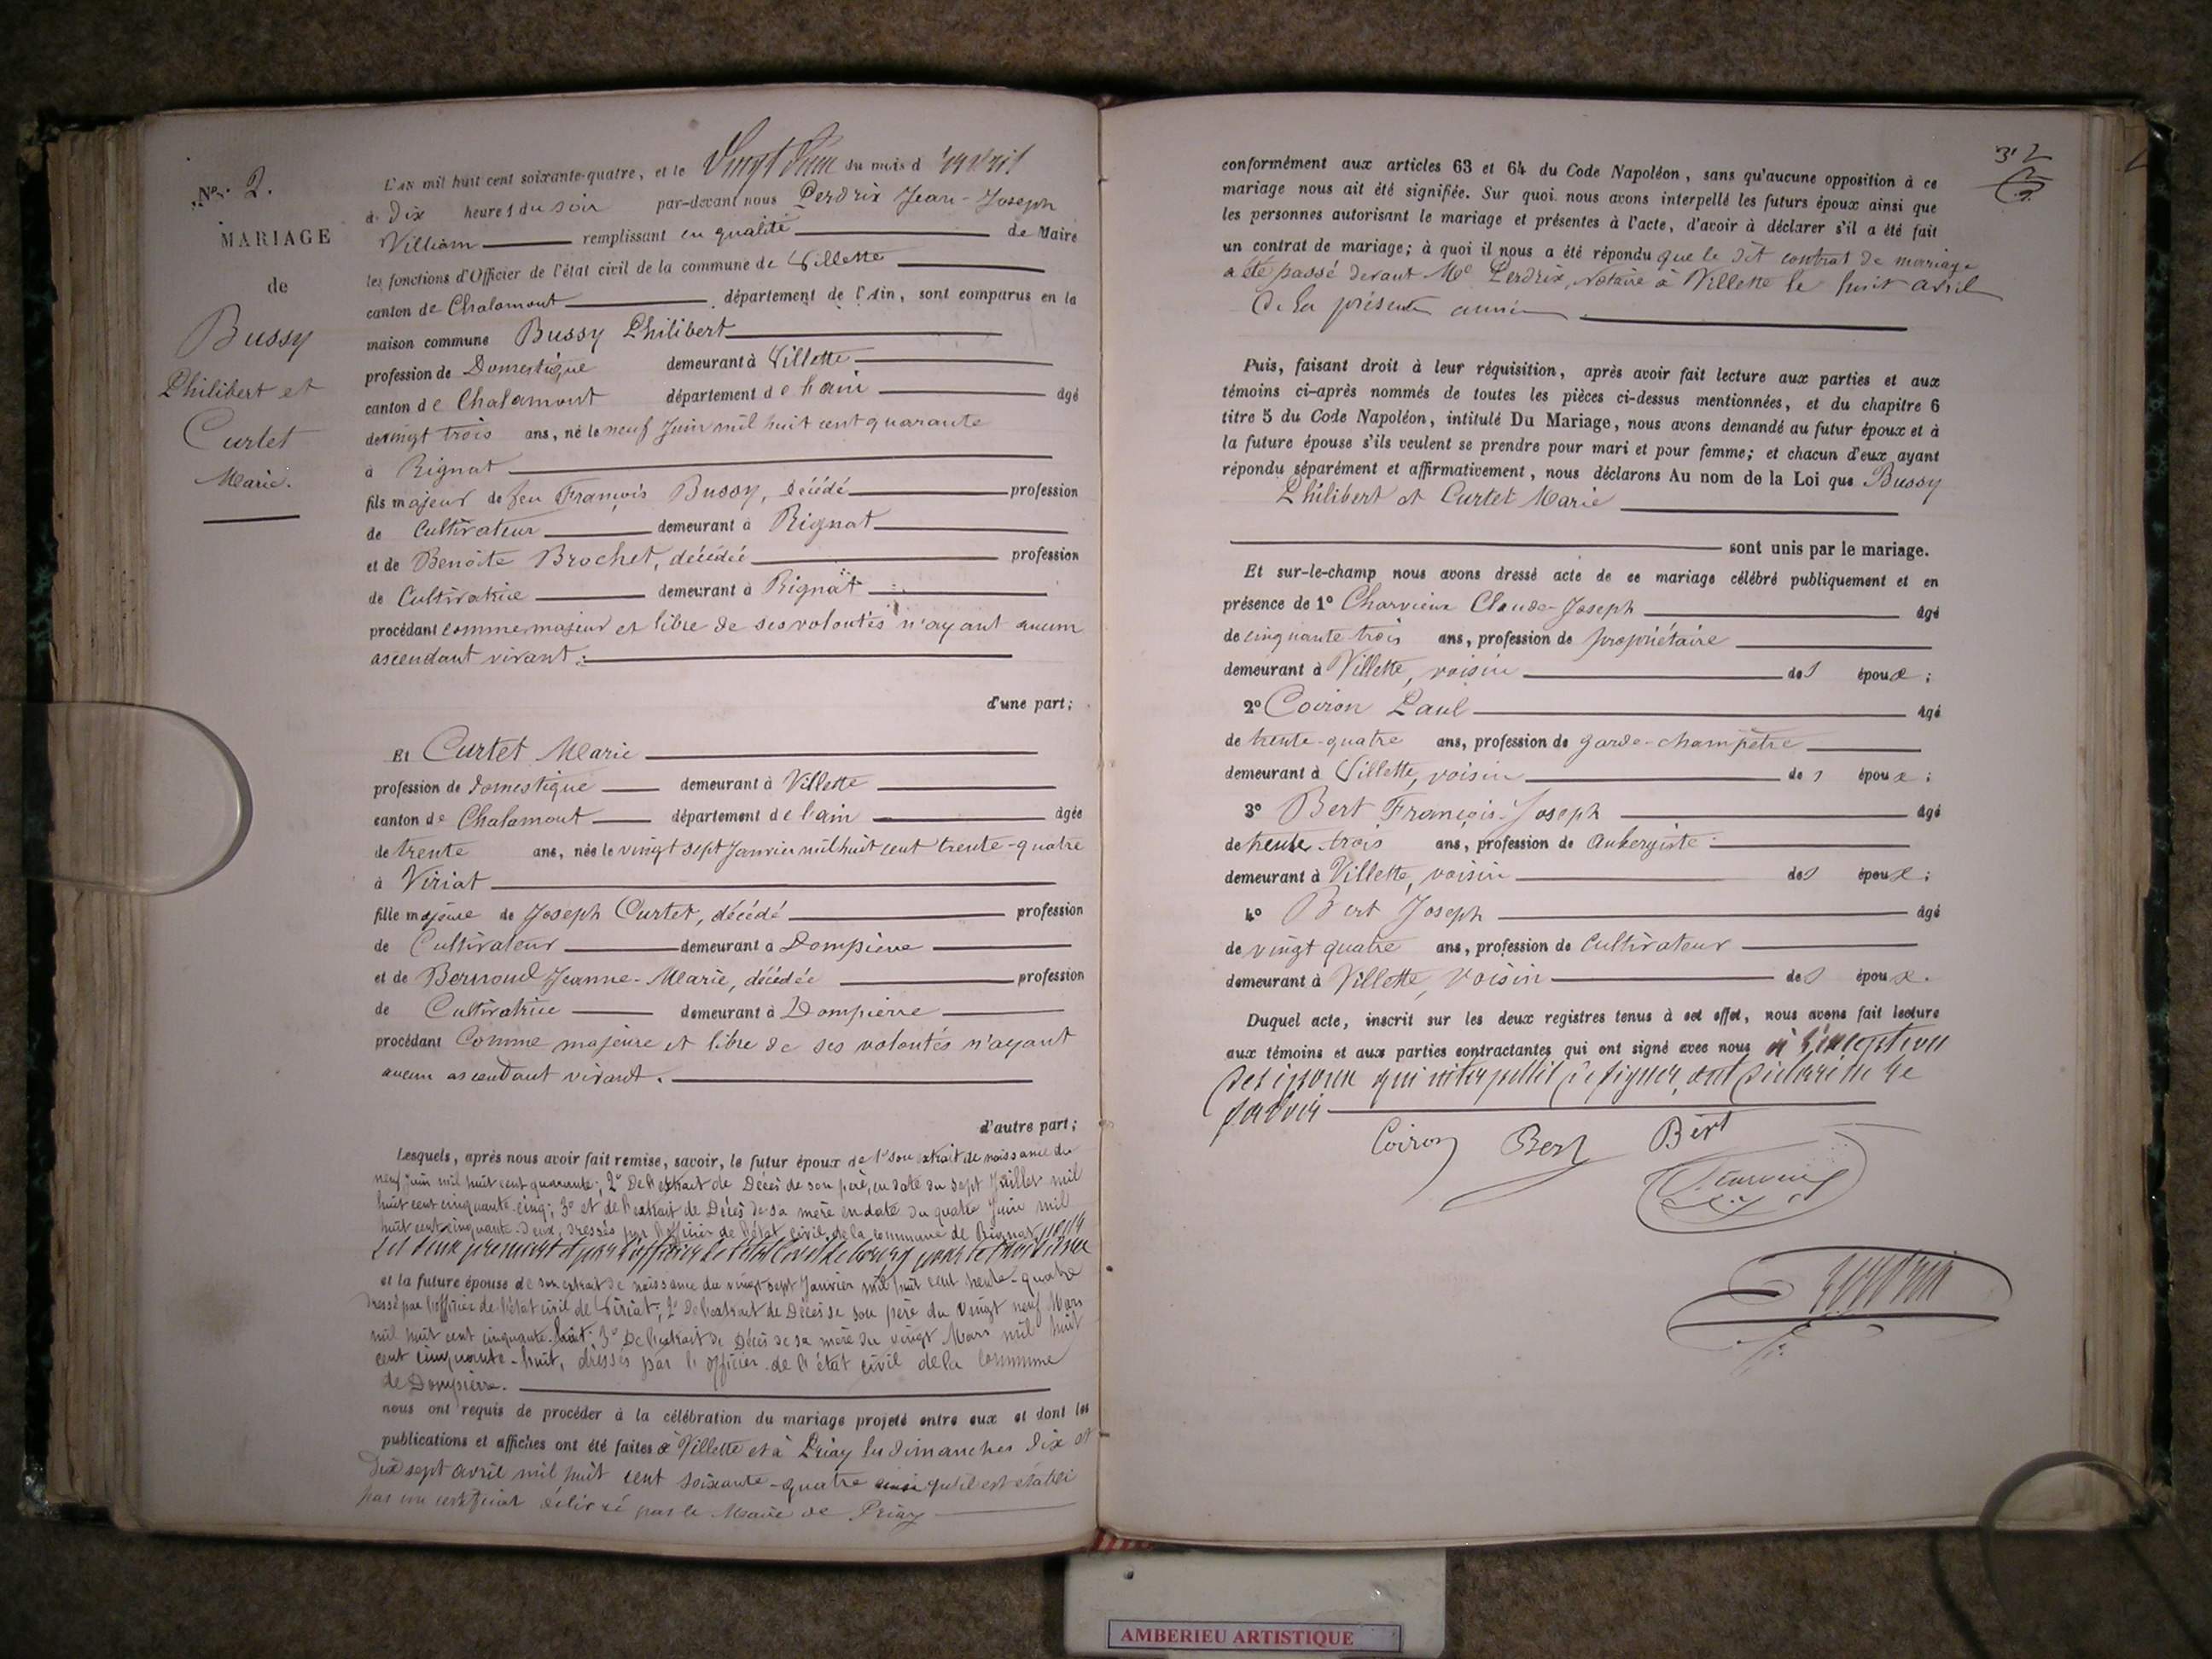 N° 2.
MARIAGE
de
Bussy
Philibert et
Curtet
Marie.
L'AN mil huit cent soixante-quatre, et le Vingt du mois d'avril
à Dix heures du soir par-devant nous Perdrix Jean-Joseph
William remplissant en qualité de Maire
les fonctions d'Officier de l'état civil de la commune de Villette
canton de Chalamont, département de l'Ain, sont comparus en la
maison commune Bussy Philibert
profession de Domestique demeurant à Villette
canton de Chalamont département de l'ain âgé
de vingt trois ans, né le neuf Juin mil huit cent quarante
à Rignat
fils majeur de feu François Bussy, décédé profession
de Cultivateur demeurant à Rignat
et de Benoite Brochet, décédée profession
de Cultivatrice demeurant à Rignat
procédant comme majeur et libre de ses volontés n'ayant aucun
ascendant vivant;
d'une part;
Et Curtet Marie
profession de domestique demeurant à Villette
canton de Chalamont département de l'ain âgée
de trente ans, née le vingt sept Janvier mil huit cent trente-quatre
à Viriat
fille majeure de Joseph Curtet, décédé profession
de Cultivateur demeurant à Dompierre
et de Bernoud Jeanne-Marie, décédée profession
de Cultivatrice demeurant à Dompierre
procédant Comme majeure et libre de ses volontés n'ayant
aucun ascendant vivant.
d'autre part;
Lesquels, après nous avoir fait remise, savoir, le futur époux de 1° son extrait de naissance du
neuf juin mil huit cent quarante; 2° De l'extrait de Décès de son père, en date du sept Juillet mil
huit cent cinquante-cinq; 3° et de l'extrait de Décès de sa mère en date du quatre Juin mil
huit cent cinquante-deux, dressés par l'officier de l'état civil de la commune de Rignat, pour
les deux premiers et par l'officier de l'état civil de pour le troisième
et la future épouse de son extrait de naissance du vingt sept Janvier mil huit cent trente-quatre
dressé par l'officier de l'état civil de Viriat; 2° De l'extrait de Décès de son père du vingt neuf Mars
mil huit cent cinquante-huit; 3° De l'extrait de Décès de sa mère du vingt Mars mil huit
cent cinquante-huit, dressés par l'officier de l'état civil de la commune
de Dompierre.
nous ont requis de procéder à la célébration du mariage projeté entre eux et dont les
publications et affiches ont été faites à Villette et à Priay les dimanches dix et
dix sept avril mil huit cent soixante-quatre ainsi qu'il est établi
par un certificat délivré par le Maire de Priay
conformément aux articles 63 et 64 du Code Napoléon, sans qu'aucune opposition à ce
mariage nous ait été signifiée. Sur quoi nous avons interpellé les futurs époux ainsi que
les personnes autorisant le mariage et présentes à l'acte, d'avoir à déclarer s'il a été fait
un contrat de mariage; à quoi il nous a été répondu que le dit contrat de mariage
a été passé devant Me Perdrix, Notaire à Villette le huit avril
de la présente année.
Puis, faisant droit à leur réquisition, après avoir fait lecture aux parties et aux
témoins ci-après nommés de toutes les pièces ci-dessus mentionnées, et du chapitre 6
titre 5 du Code Napoléon, intitulé Du Mariage, nous avons demandé au futur époux et à
la future épouse s'ils veulent se prendre pour mari et pour femme; et chacun d'eux ayant
répondu séparément et affirmativement, nous déclarons Au nom de la Loi que Bussy
Philibert et Curtet Marie
sont unis par le mariage.
Et sur-le-champ nous avons dressé acte de ce mariage célébré publiquement et en
présence de 1° Charvieux Claude-Joseph âgé
de cinquante trois ans, profession de propriétaire
demeurant à Villette, voisin des époux;
2° Coiron Paul âgé
de trente-quatre ans, profession de garde-champêtre
demeurant à Villette, voisin des époux;
3° Bert François-Joseph âgé
de trente-trois ans, profession de Aubergiste
demeurant à Villette, voisin des époux;
4° Bert Joseph âgé
de vingt quatre ans, profession de Cultivateur
demeurant à Villette, Voisin des époux.
Duquel acte, inscrit sur les deux registres tenus à cet effet, nous avons fait lecture
aux témoins et aux parties contractantes qui ont signé avec nous à l'exception
des époux qui interpellés de signer, ont déclaré ne le
savoir
Coiron Bert Bert
Perdrix
AMBERIEU ARTISTIQUE